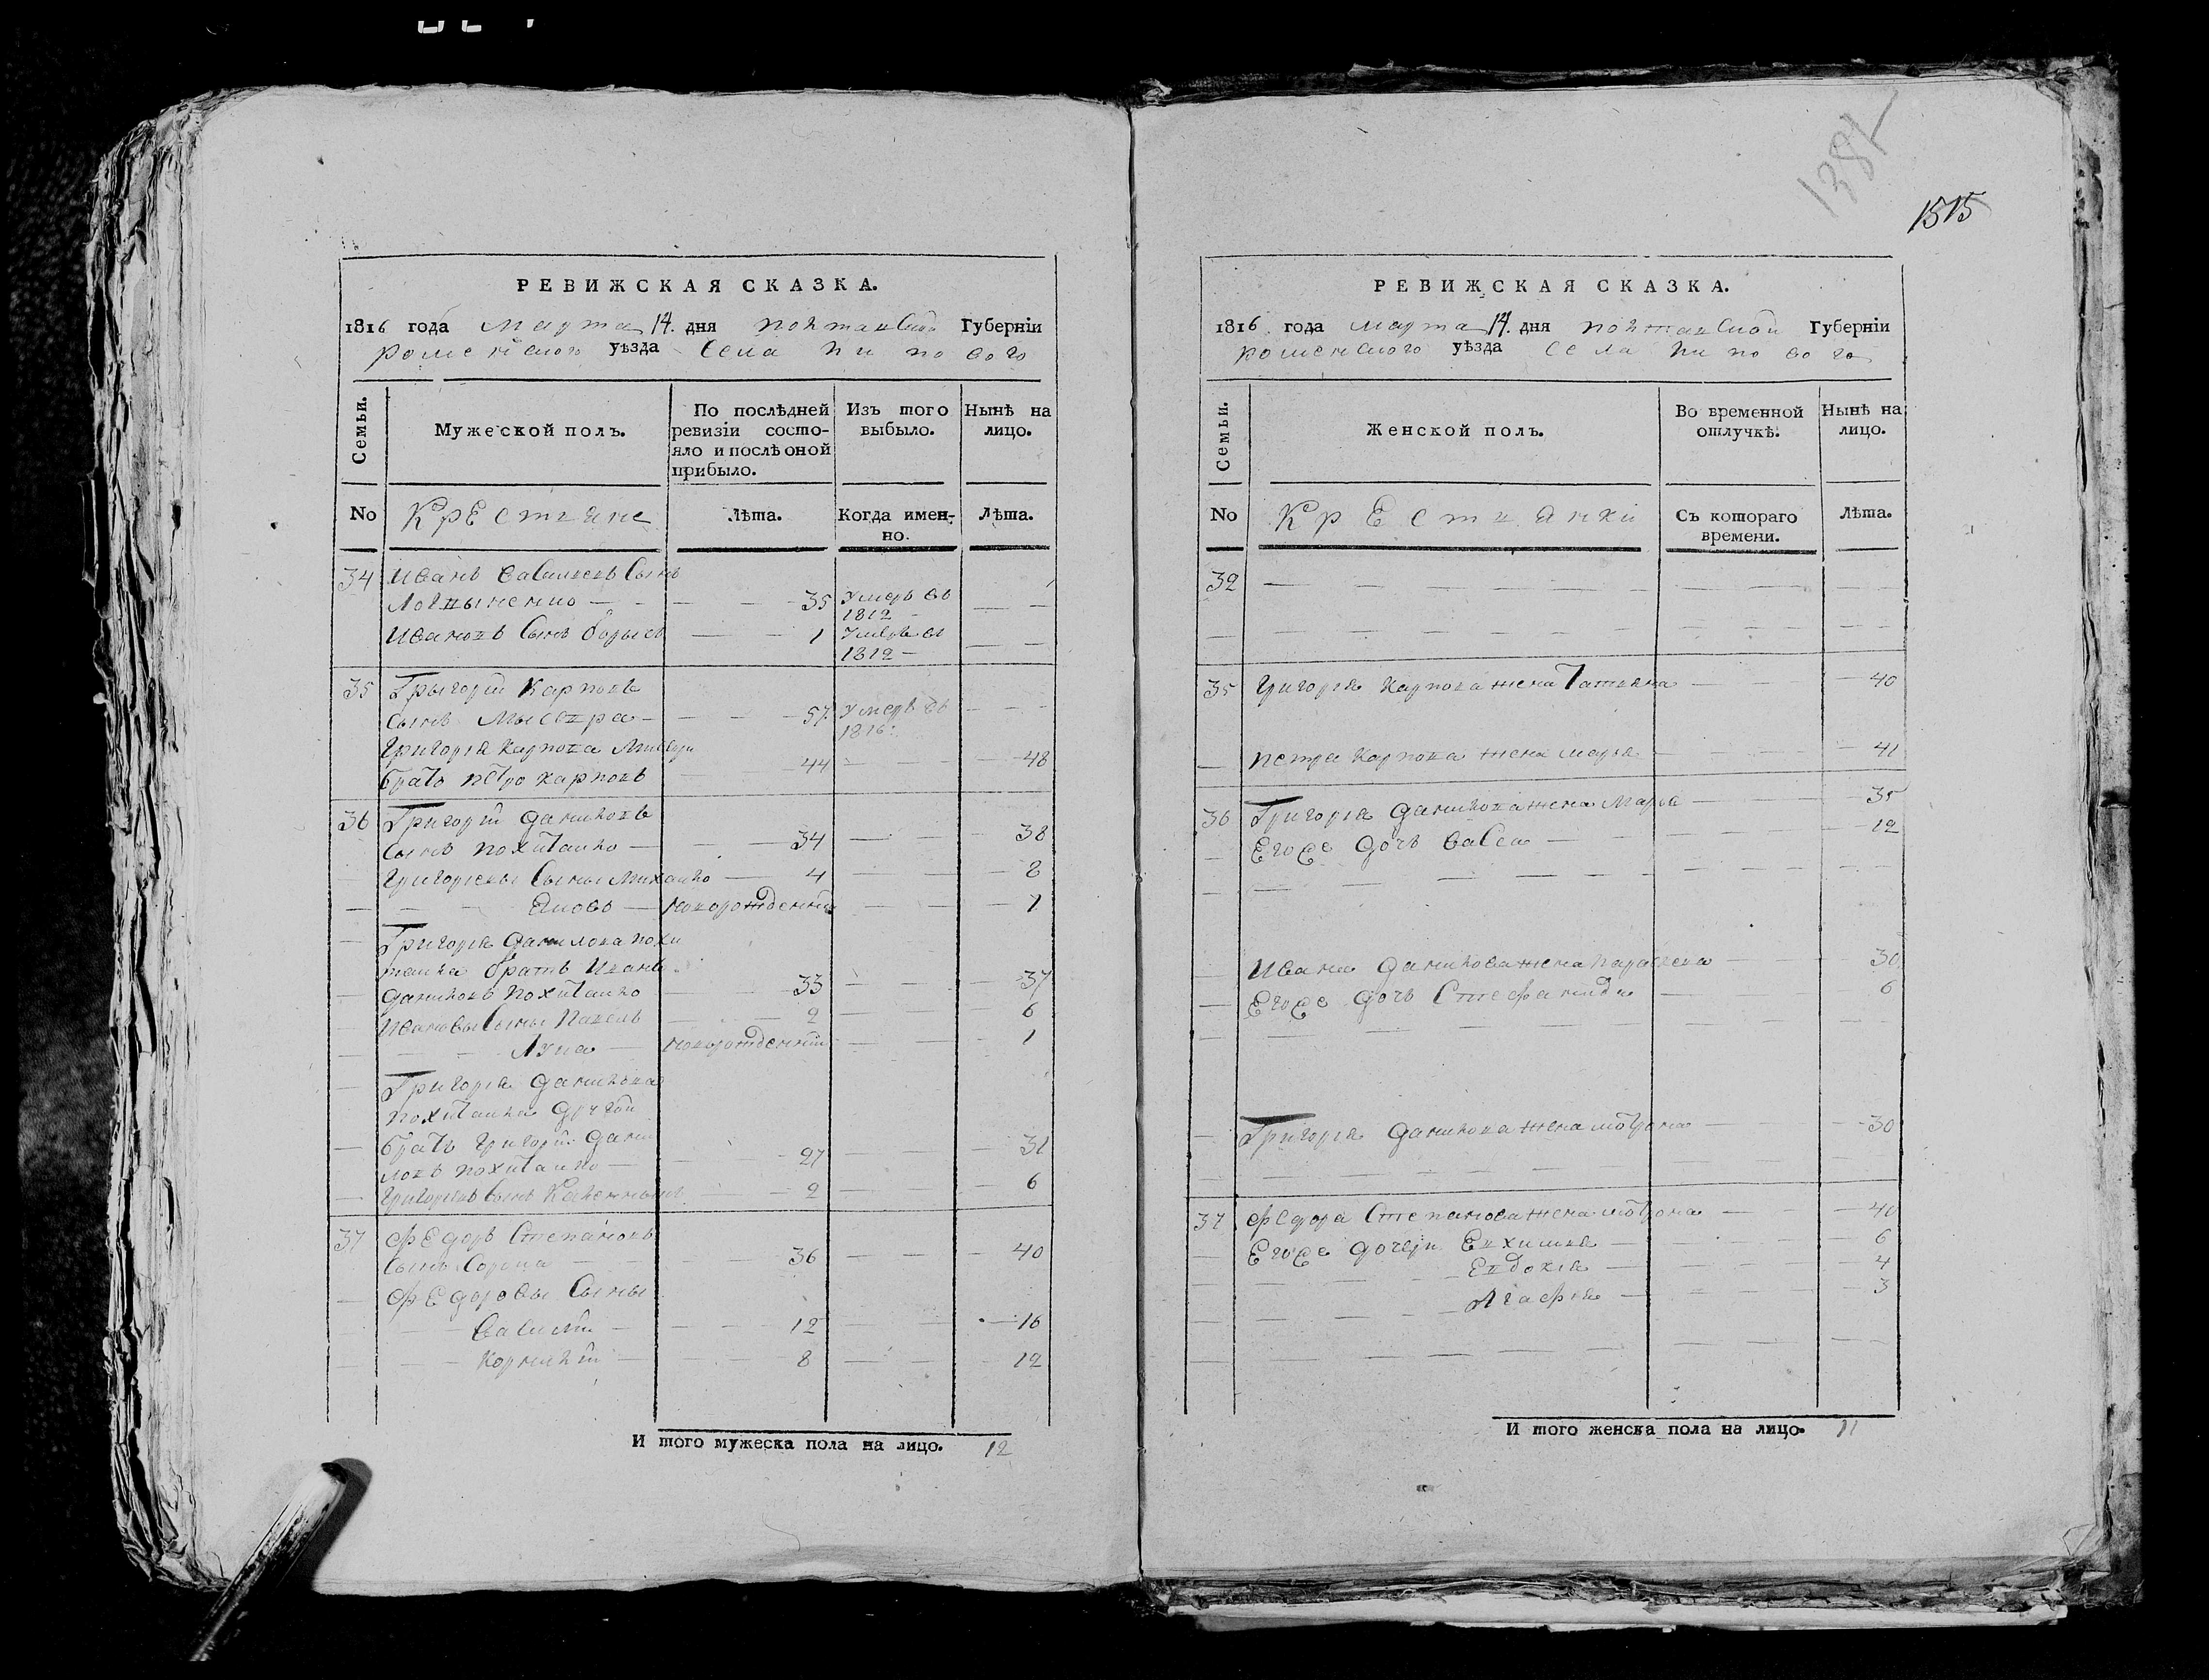 1387
1515
РЕВИЖСКАЯ СКАЗКА.
1816 года марта 14. дня полтавской Губерніи
роменского уѣзда села липового
Семьи.
Мужеской полъ.
По послѣдней ревизіи состо-
яло и послѣ оной прибыло.
Изъ того выбыло.
Нынѣ на лицо.
No Крестяне Лѣта. Когда имен-
но. Лѣта.
34 Иванъ Савѣ сынъ
35 Умеръ въ
1812
Ивановъ сынъ борысъ 1 Умеръ въ
1812
35 Грыгорій Карповъ
сынъ 57 Умеръ въ
1816
Григорія Карпова
братъ петро карповъ 44 48
36 Григорій даниловъ
сынъ похитайло 34 38
Григориевы сыны Михайло 4 8
Яковъ новорожденній 1
Григорія данилова похи
тайла братъ Иванъ
даниловъ похитайло 33 37
Ивановы сыны Павелъ 2 6
Лука новорожденній 1
Григорія данилова
похитайла другой
братъ григорій дани
ловъ похитайло 27 31
григориевъ сынъ 2 6
37 Федоръ Степановъ
сынъ Сорока 36 40
Федоровы сыны
Василій 12 16
Корнилій 8 12
И того мужеска пола на лицо. 12
РЕВИЖСКАЯ СКАЗКА.
1816 года марта 14. дня полтавской Губерніи
роменского уѣзда села липового
Семьи.
Женской полъ.
Во временной отлучкѣ.
Нынѣ на лицо.
No Крестянки Съ котораго
времени. Лѣта.
32
35 Григорія Карпова жена Татияна 40
петра Карпова жена марья 41
36 Григорія данилова жена Марья 35
Егоже дочь 12
Ивана данилова жена параскева 30
Егоже дочь Стефанида 6
Григорія данилова жена мотрона 30
37 Федора Степанова жена мотрона 40
Егоже дочери Евхимия 6
Евдокия 4
Агафия 3
И того женска пола на лицо. 11